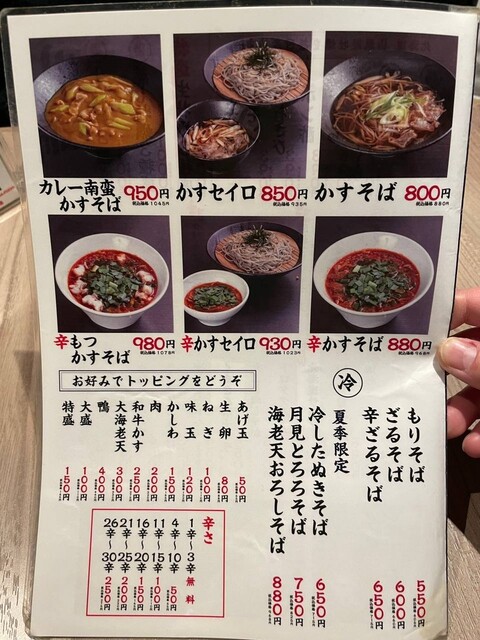 カレー南蛮
かすそば
950円
税込価格 1045円
かすセイロ 850円
税込価格 935円
かすそば 800円
税込価格 880円
辛もつ
かすそば
980円
税込価格 1078円
辛かすセイロ 930円
税込価格 1023円
辛かすそば 880円
税込価格 968円
冷
もりそば 550円
ざるそば 600円
辛ざるそば 650円
夏季限定
冷したぬきそば 650円
月見とろろそば 750円
海老天おろしそば 880円
お好みでトッピングをどうぞ
あげ玉 50円
生卵 80円
ねぎ 100円
味玉 120円
かしわ 150円
肉 200円
和牛かす 200円
大海老天 300円
鴨 400円
大盛 100円
特盛 150円
辛さ
1辛〜3辛 無料
4辛〜10辛 50円
11辛〜15辛 100円
16辛〜20辛 150円
21辛〜25辛 200円
26辛〜30辛 250円